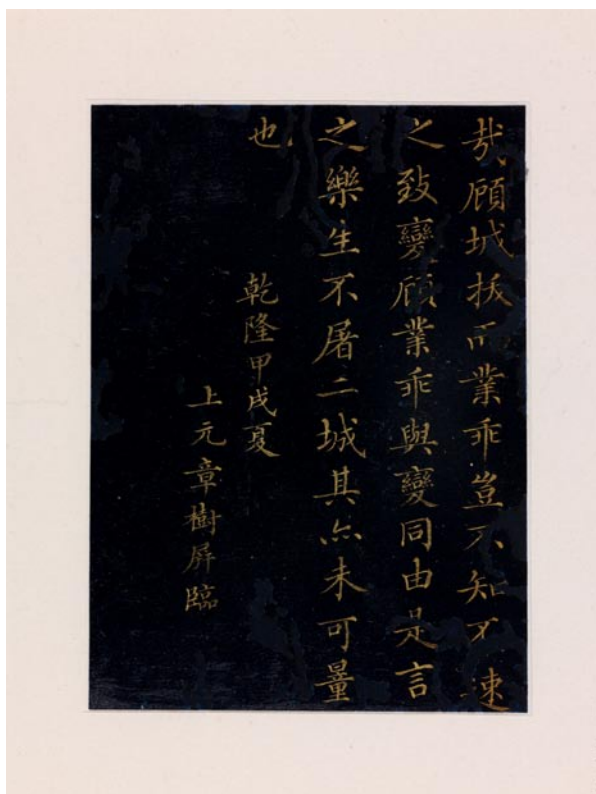 哉顧城拔而業乖豈不知不速
之致變顧業乖與變同由是言
之樂生不屠二城其亦未可量
也
乾隆甲戌夏
上元章樹屏臨